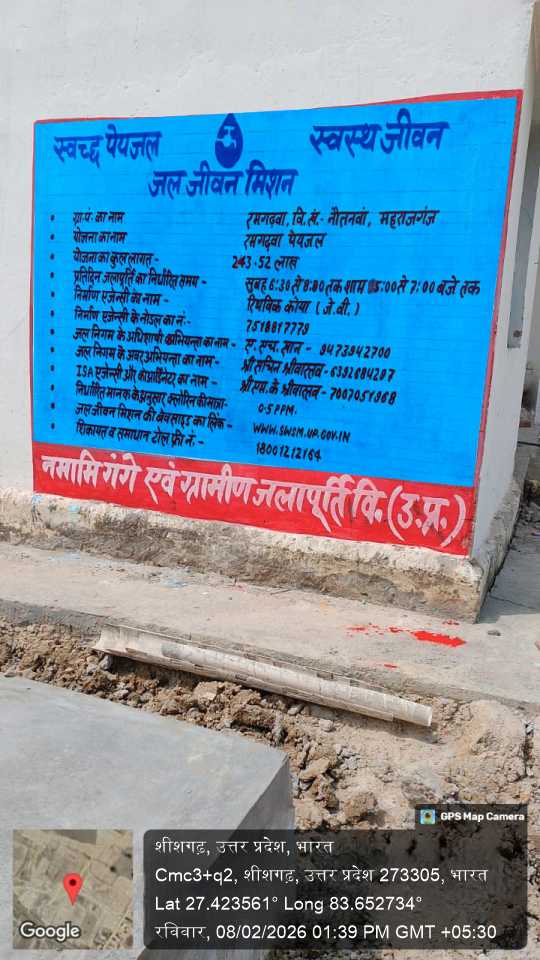 स्वच्छ पेयजल स्वस्थ जीवन
जल जीवन मिशन
• ग्रा.पं. का नाम रमगढ़वा, वि.खं.- नौतनवां, महराजगंज
• योजना का नाम रमगढ़वा पेयजल
• योजना का कुल लागत - 243.52 लाख
• प्रतिदिन जलापूर्ति का निर्धारित समय - सुबह 6:30 से 9:30 तक शाम 05:00 से 7:00 बजे तक
• निर्माण एजेन्सी का नाम - रित्विक कोया (जे.वी.)
• निर्माण एजेन्सी के नोडल का नं:- 7518817779
• जल निगम के अधिशाषी अभियन्ता का नाम - ए. एच. खान - 9473942700
• जल निगम के अवर अभियन्ता का नाम - श्री सचिन श्रीवास्तव - 6392694297
• ISA एजेन्सी और कोआर्डिनेटर का नाम - श्री एम. के श्रीवास्तव - 7007051968
• निर्धारित मानक के अनुसार क्लोरिन की मात्रा- 0.5 PPM.
• जल जीवन मिशन की वेबसाइड का लिंक - WWW.SWSM.UP.GOV.IN
• शिकायत व समाधान टोल फ्री नं. - 18001212164
नमामि गंगे एवं ग्रामीण जलापूर्ति वि. (उ.प्र.)
GPS Map Camera
शीशगढ़, उत्तर प्रदेश, भारत
Cmc3+q2, शीशगढ़, उत्तर प्रदेश 273305, भारत
Lat 27.423561° Long 83.652734°
रविवार, 08/02/2026 01:39 PM GMT +05:30
Google